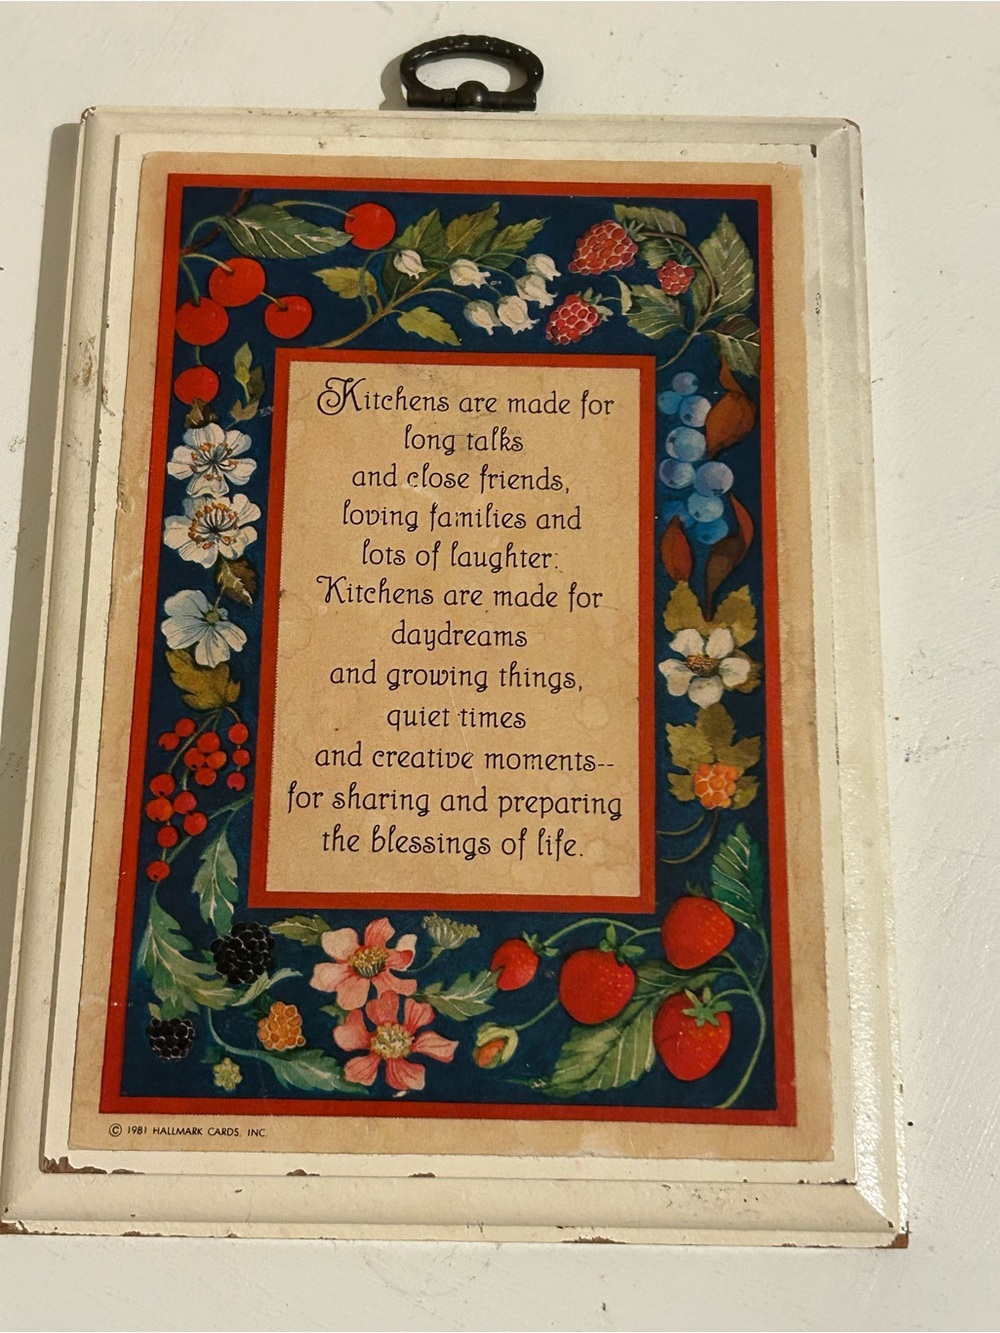 Kitchens are made for
long talks
and close friends,
loving families and
lots of laughter.
Kitchens are made for
daydreams
and growing things,
quiet times
and creative moments--
for sharing and preparing
the blessings of life.
© 1981 HALLMARK CARDS, INC.